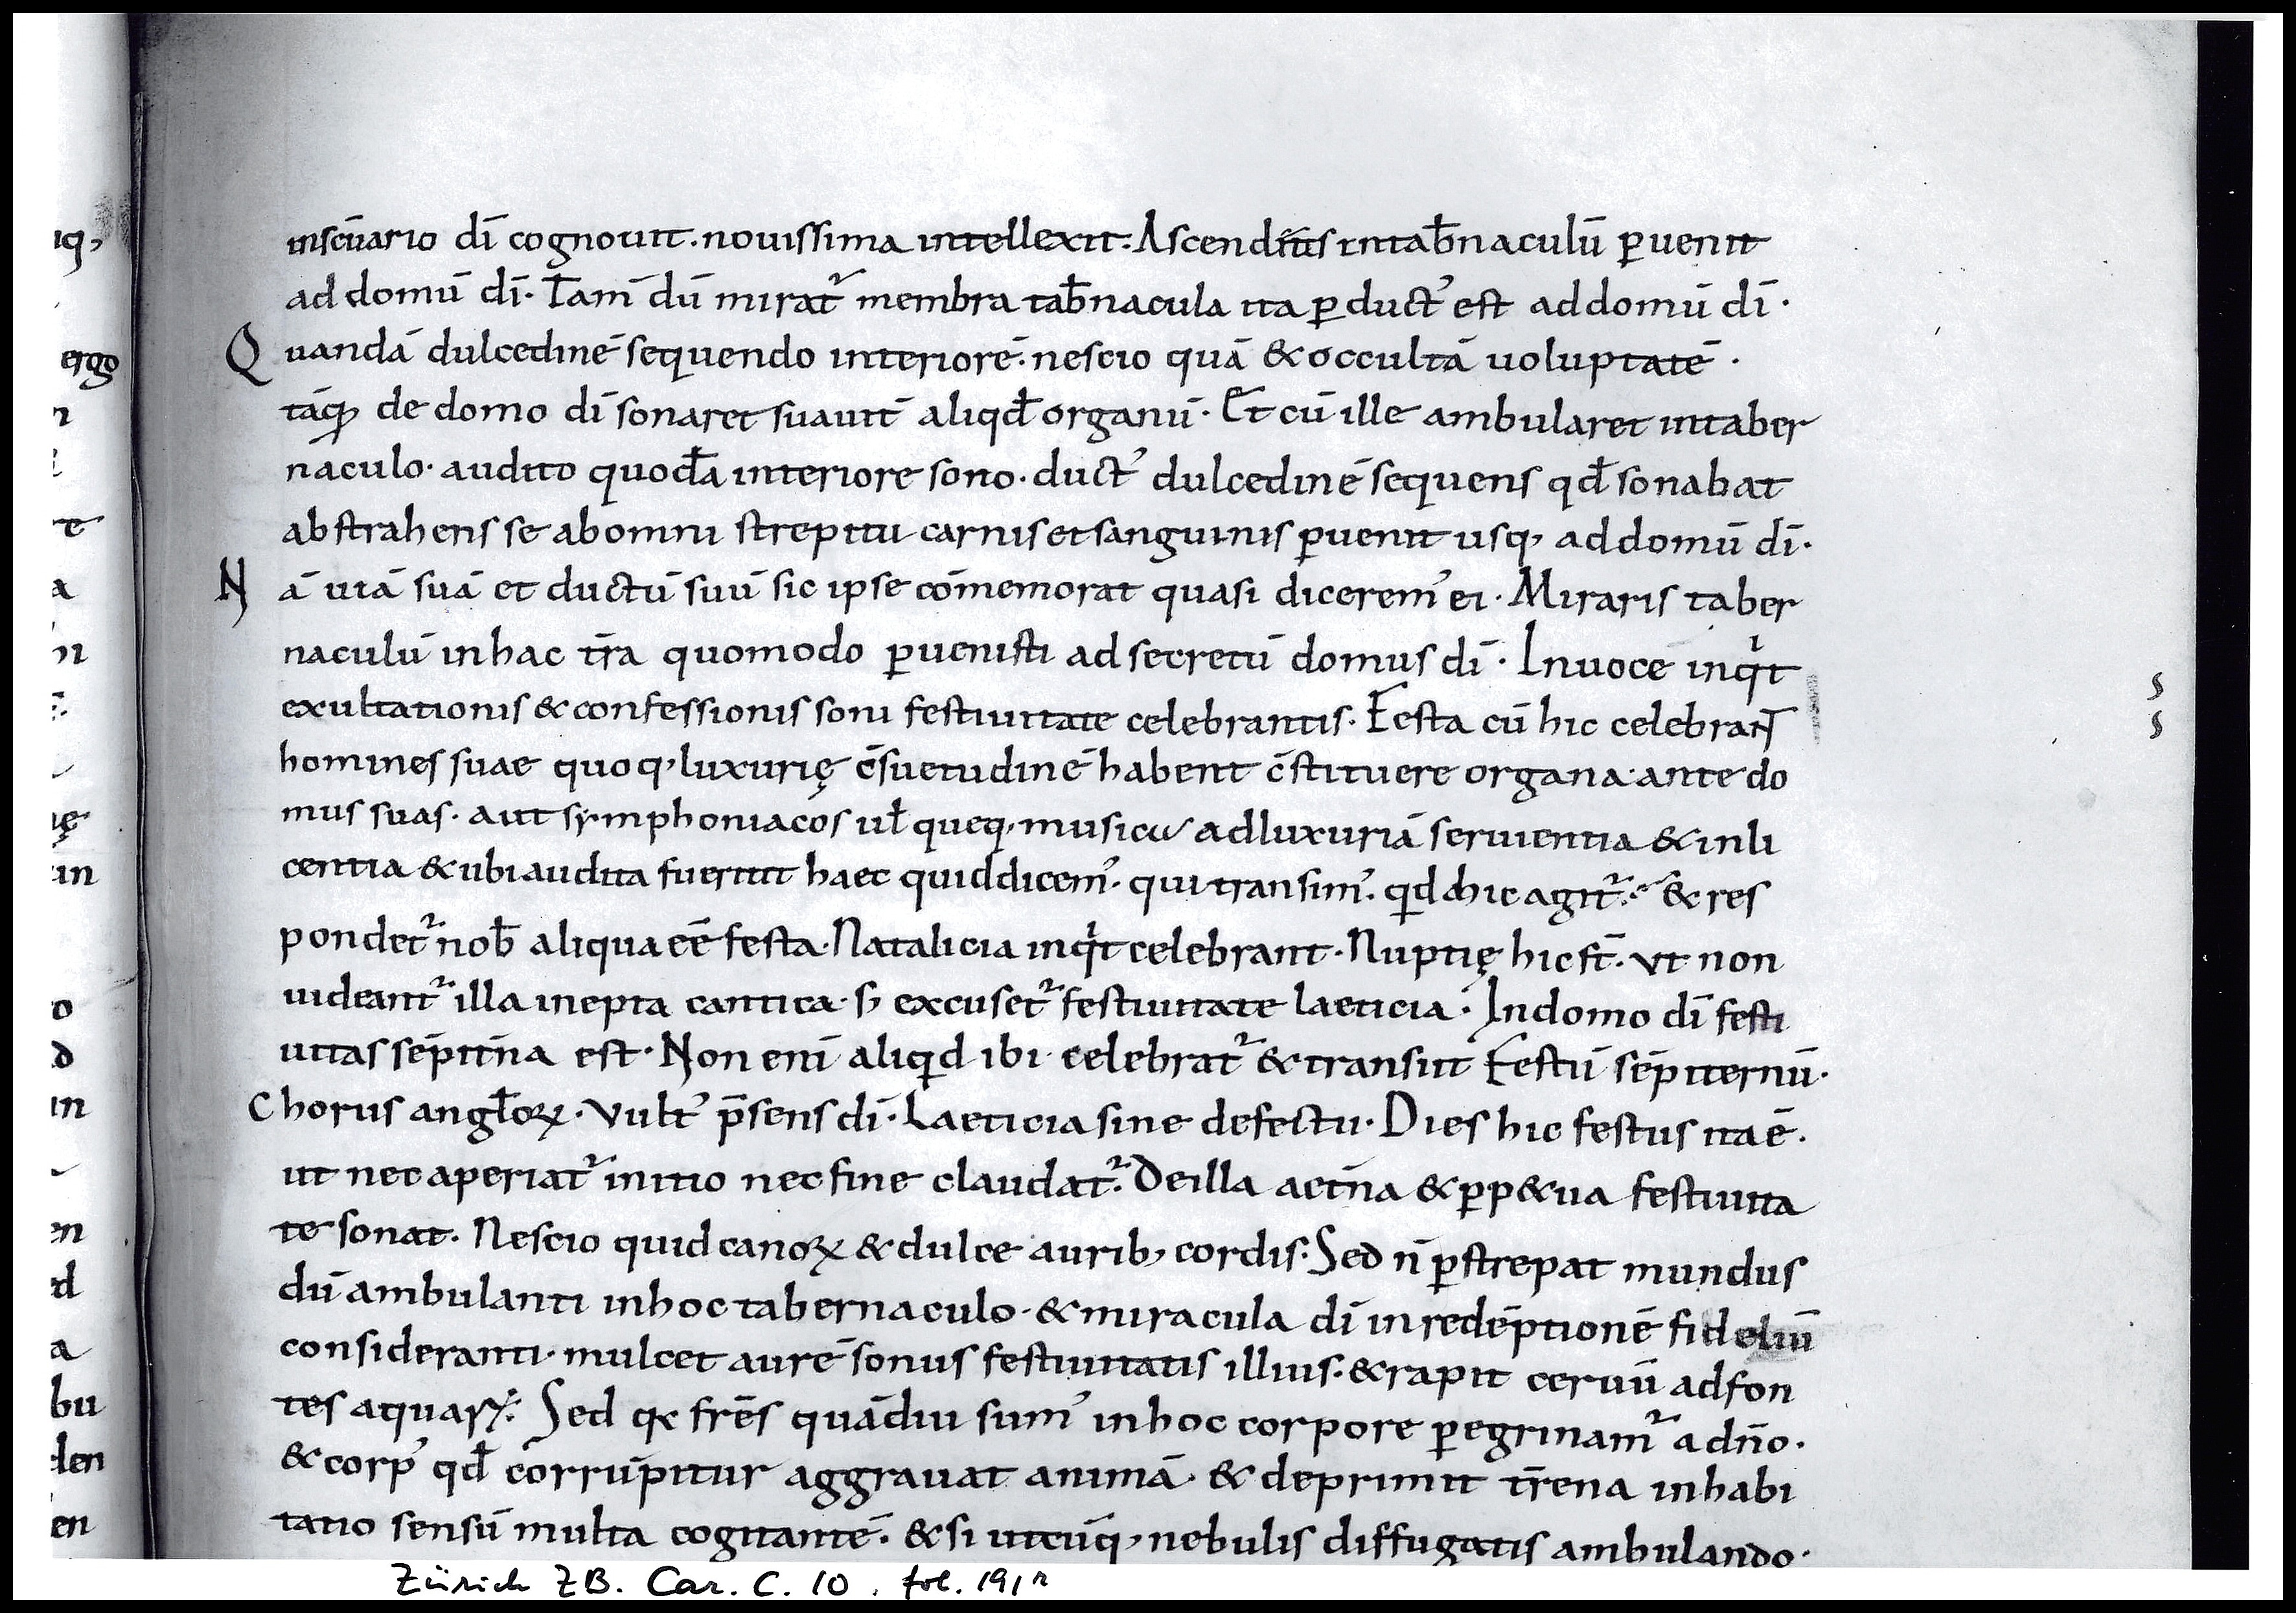 inscūario dī cognouit. nouissima intellexit. Ascendens intab̄naculū ꝑuenit
ad domū dī. Tam̄ dū mirat᷑ membra tab̄nacula ita ꝑduct᾿ est ad domū dī.
Quandā dulcedinē sequendo interiorē. nescio quā & occultā uoluptatē.
tāq̄ de domo dī sonaret suauit̄ aliqđ organū. Et cū ille ambularet intaber
naculo. audito quodā interiore sono. duct᾿ dulcedinē sequens qđ sonabat
abstrahens se abomni strepitu carnis et sanguinis ꝑuenit usq, ad domū dī.
Nā uiā suā et ductū suū sic ipse cōmemorat quasi dicerem᾿ ei. Miraris taber
naculū in hac tr̄a quomodo ꝑuenisti ad secretū domus dī. Inuoce inqt
exultationis & confessionis soni festiuitate celebrantis. Festa cū hic celebrant
homines suae quoq, luxurię c̄suetudinē habent c̄stituere organa ante do
mus suas. aut symphoniacos ul̄ queq, musica adluxuriā seruientia & inli
centia & ubi audita fuerint haec quid dicem᾿. qui transim᾿. qd hic agit᷑. & res
pondet᷑ nob̄ aliqua eē festa. Natalicia inqt celebrant. Nuptię hic st̄. Vt non
uideant᷑ illa inepta cantica. s; excuset᷑ festiuitate laeticia. Indomo dī festi
uitas sēpit̄na est. Non enī aliqd ibi celebrat᷑ & transiit Festū sēpiternū.
Chorus angl̄oꝝ. Vult᾿ p̄sens dī. Laeticia sine defectu. Dies hic festus ita ē.
ut nec aperiat᷑ initio nec fine claudat᷑. De illa aet̄na & ꝑp&ua festiuita
te sonat. Nescio quid canoꝝ & dulce aurib, cordis. Sed n̄ ꝑstrepat mundus
dū ambulanti in hoc tabernaculo. & miracula dī in redēptionē fideliū
consideranti. mulcet aurē sonus festiuitatis illius. & rapit ceruū ad fon
tes aquaꝝ. Sed qc fr̄es quādiu sum᾿ in hoc corpore ꝑegrinam᷑ a dn̄o.
& corp᾿ qđ corrūpitur aggrauat animā. & deprimit tr̄ena inhabi
tatio sensū multa cogitantē. & si utcūq, nebulis diffugatis ambulando.
Zürich ZB. Car. C. 10. fol. 191r